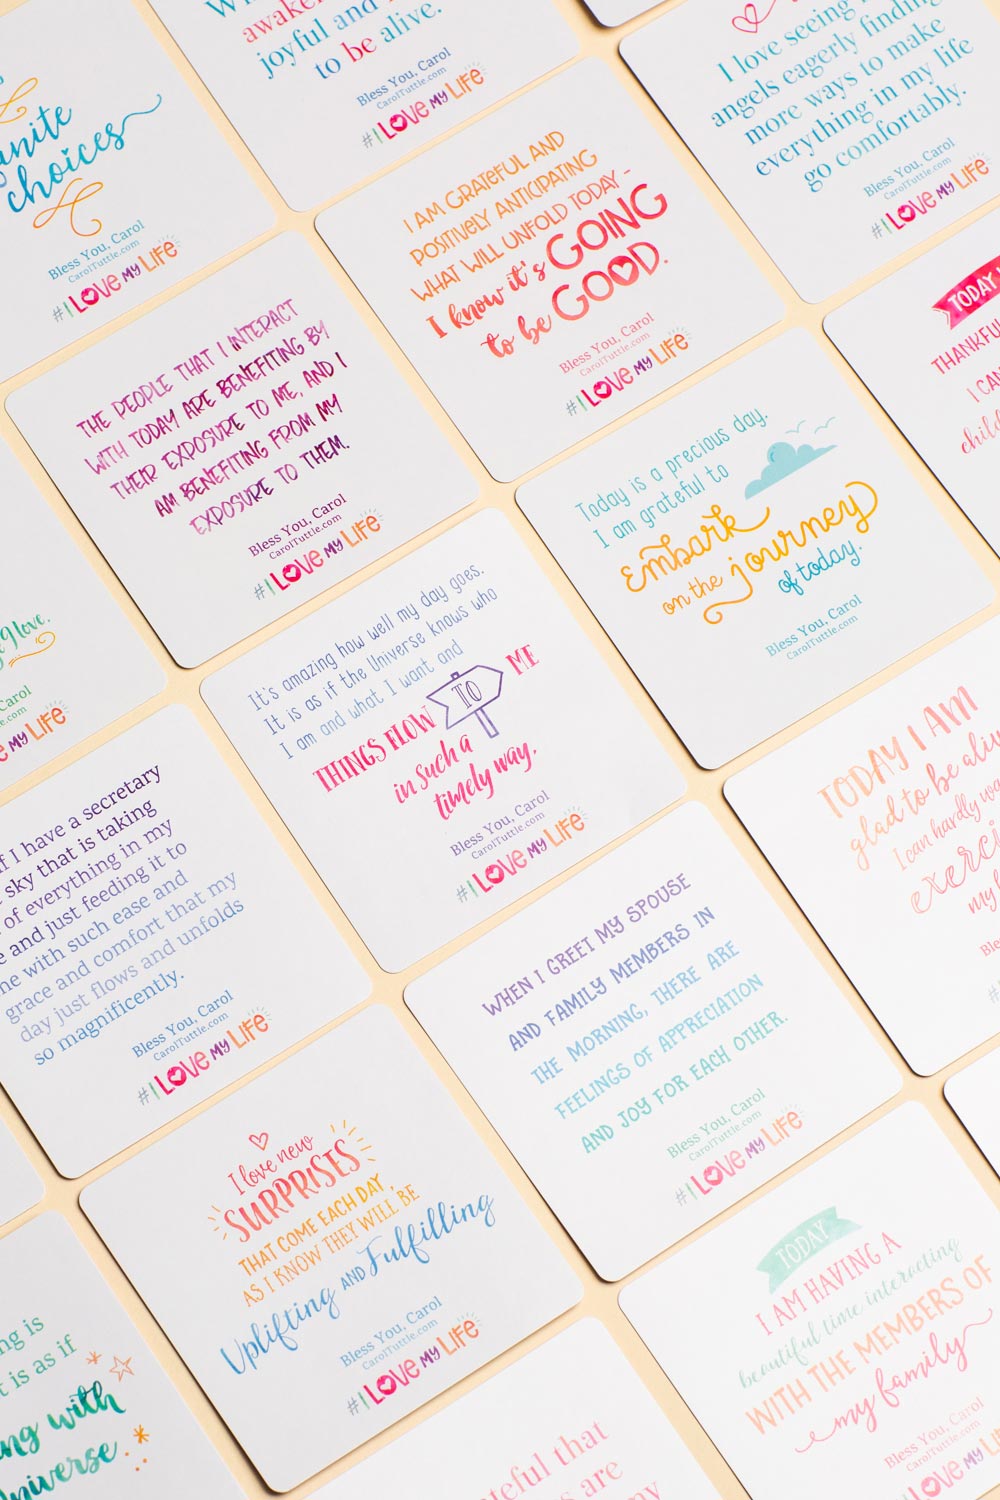 awaken
joyful and
to be alive.
Bless You, Carol
CarolTuttle.com
#I LOVE MY LIFE
choices
Bless You, Carol
CarolTuttle.com
#I LOVE MY LIFE
I love seeing
angels eagerly finding
more ways to make
everything in my life
go comfortably.
Bless You, Carol
CarolTuttle.com
#I LOVE MY LIFE
I AM GRATEFUL AND
POSITIVELY ANTICIPATING
WHAT WILL UNFOLD TODAY -
I know it's GOING
to be GOOD.
Bless You, Carol
CarolTuttle.com
#I LOVE MY LIFE
THE PEOPLE THAT I INTERACT
WITH TODAY ARE BENEFITING BY
THEIR EXPOSURE TO ME, AND I
AM BENEFITING FROM MY
EXPOSURE TO THEM.
Bless You, Carol
CarolTuttle.com
#I LOVE MY LIFE
TODAY
THANKFUL
I CAN
Today is a precious day.
I am grateful to
Embark
on the journey
of today.
Bless You, Carol
CarolTuttle.com
love.
Carol
CarolTuttle.com
MY LIFE
It's amazing how well my day goes.
It is as if the Universe knows who
I am and what I want and
THINGS FLOW TO ME
in such a
timely way.
Bless You, Carol
CarolTuttle.com
#I LOVE MY LIFE
TODAY I AM
glad to be alive
I can hardly
my
if I have a secretary
sky that is taking
of everything in my
and just feeding it to
me with such ease and
grace and comfort that my
day just flows and unfolds
so magnificently.
Bless You, Carol
CarolTuttle.com
#I LOVE MY LIFE
WHEN I GREET MY SPOUSE
AND FAMILY MEMBERS IN
THE MORNING, THERE ARE
FEELINGS OF APPRECIATION
AND JOY FOR EACH OTHER.
Bless You, Carol
CarolTuttle.com
#I LOVE MY LIFE
I love new
SURPRISES
THAT COME EACH DAY,
AS I KNOW THEY WILL BE
Uplifting AND Fulfilling
Bless You, Carol
CarolTuttle.com
#I LOVE MY LIFE
TODAY
I AM HAVING A
beautiful time interacting
WITH THE MEMBERS OF
my family
Bless You, Carol
CarolTuttle.com
I LOVE MY LIFE
is
it is as if
with
Universe
that
are
my